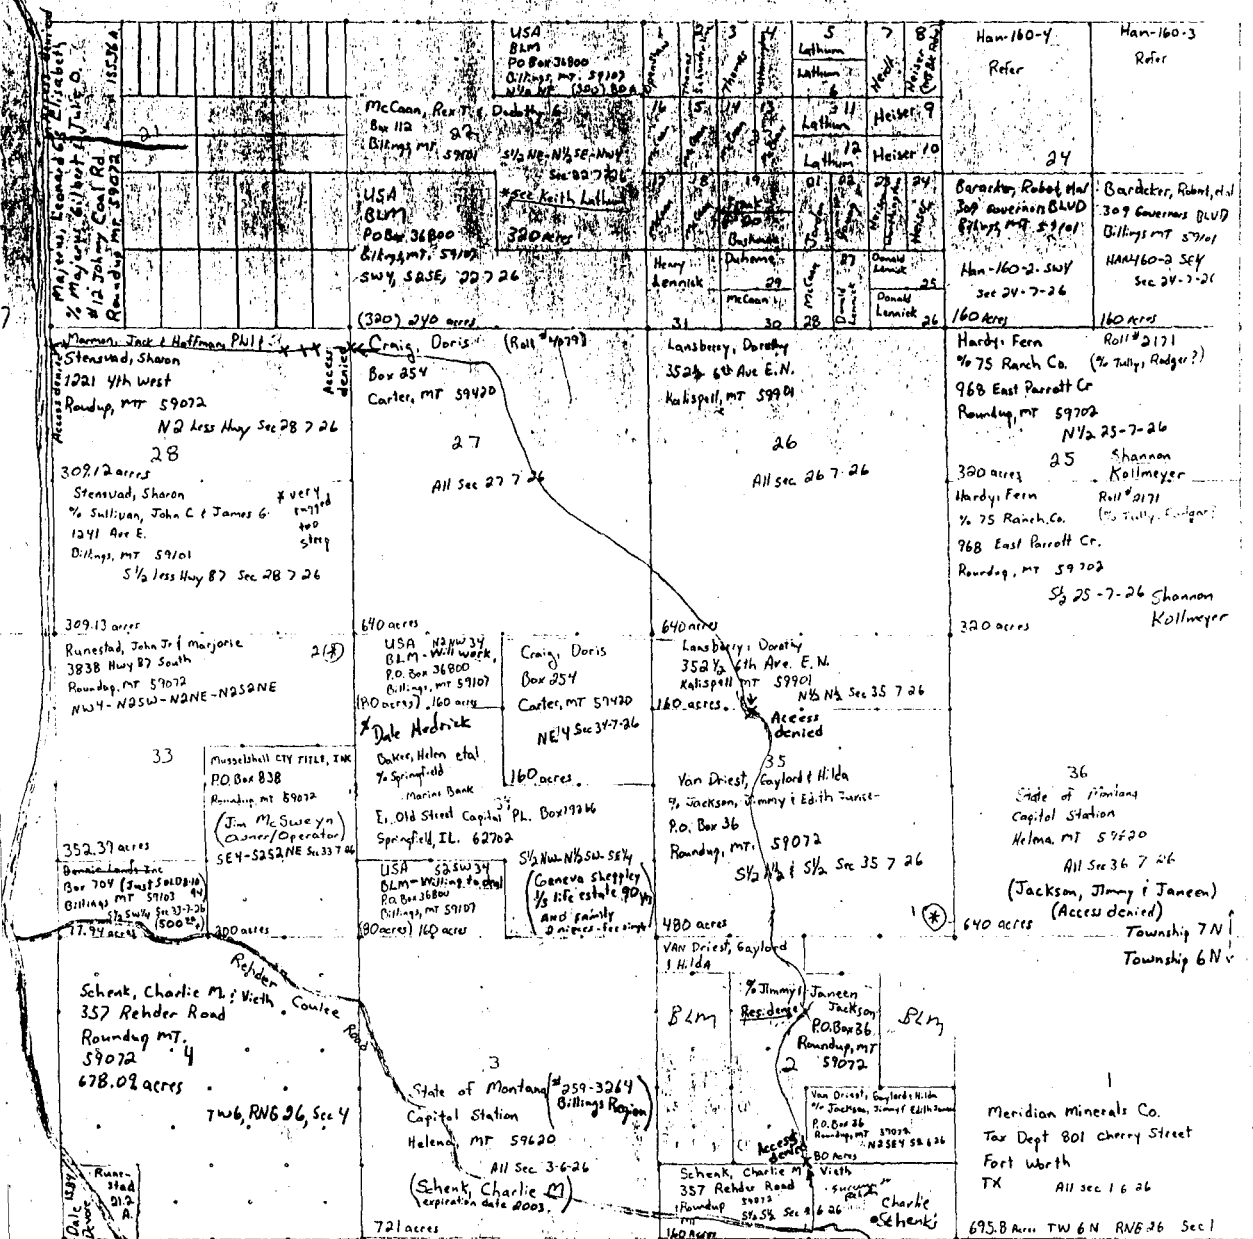 Majerus, Leonard & Elizabeth
% Majerus Gilbert & Julie O.
#12 Johnny Coal Rd
Roundup MT 59072
21
USA
BLM
PO Box 36800
Billings, MT. 59107
McCaan, Rex T & Dodothy G
Box 112
22
Billings MT.
59101
S½ NE-N½ SE-NW4
Sec 22 7 26
*See Keith Lathum
320 acres
USA
BLM
PO Box 36800
Billings, MT. 59107
SW4, S2SE, 22 7 26
(320) 240 acres
1
3
4
5
7
8
Thomas
Lathum
Lathum
6
16
15
14
13
11
Lathum
Heiser 9
12
Lathum
Heiser 10
McCaan
19
24
Henry
Lennick
31
Duhame
29
McCaan
30
McCaan
28
27
Donald
Lennick
Donald
Lennick
25
Donald
Lennick
26
Han-160-4
Refer
Han-160-3
Refer
24
Baracker, Robert, etal
309 Governors BLVD
Billings MT 59101
Han-160-2. SW4
Sec 24-7-26
160 Acres
Baracker, Robert, etal
309 Governors BLVD
Billings MT 59101
HAN160-2 SE4
Sec 24-7-26
160 Acres
Marmon, Jack & Hoffman, Phil &
Stensvad, Sharon
1221 4th West
Roundup, MT 59072
N2 Less Hwy Sec 28 7 26
28
309.12 acres
Access denied
Access denied
Stensvad, Sharon
% Sullivan, John C & James G.
1241 Ave E.
Billings, MT 59101
S½ less Hwy 87 Sec 28 7 26
* very
rugged
too
steep
309.13 acres
Craig, Doris (Roll #4079)
Box 254
Carter, MT 59420
27
All Sec 27 7 26
640 acres
Lansberry, Dorothy
352½ 6th Ave E.N.
Kalispell, MT 59901
26
All Sec. 26 7-26
640 acres
Hardy, Fern Roll #2171
% 75 Ranch Co. (% Tully, Rodger?)
968 East Parrott Cr
Roundup, MT 59702
N½ 25-7-26
25
Shannon
Kollmeyer
320 acres
Hardy, Fern Roll #2171
% 75 Ranch, Co.
968 East Parrott Cr.
Roundup, MT 59702
S½ 25-7-26 Shannon
Kollmeyer
320 acres
Runestad, John Jr & Marjorie
3838 Hwy 87 South
Roundup, MT 59072
NW4-N2SW-N2NE-N2S2NE
33
352.39 acres
Musselshell CTY TITLE, INK
P.O. Box 838
Roundup, MT 59072
(Jim McSweyn)
Owner/Operator
SE4-S2S2NE Sec 33 7 26
200 acres
Box 704 (Just SOLD
Billings MT 59103
S½ SW¼ Sec 33-7-26
17.94 acres
USA N2NW 34
BLM-Will work,
P.O. Box 36800
Billings, MT 59107
(80 acres) 160 acres
* Dale Hedrick
Baker, Helen etal
% Springfield
Marine Bank
E. Old Street Capital PL. Box 19266
Springfield, IL. 62702
34
Craig, Doris
Box 254
Carter, MT 59420
NE¼ Sec 34-7-26
160 acres
USA S2SW 34
BLM-Willing to deal
P.O. Box 36800
Billings, MT 59107
(80 acres) 160 acres
S½ NW-N½ SW-SE¼
(Geneva Sheppley
⅓ life estate 90 yrs
AND family
2 nieces-fee simple)
Lansberry, Dorothy
352½ 6th Ave. E.N.
Kalispell MT 59901
N½ N½ Sec 35 7 26
160 acres
Access
denied
35
Van Driest, Gaylord & Hilda
% Jackson, Jimmy & Edith Junice
P.O. Box 36
Roundup, MT. 59072
S½ N½ & S½ Sec 35 7 26
480 acres
36
State of Montana
Capitol Station
Helena, MT 59620
All Sec 36 7 26
(Jackson, Jimmy & Janeen)
(Access denied)
640 acres
Township 7N
Township 6N
Rehder Coulee Road
Schenk, Charlie M. & Vieth
357 Rehder Road
Roundup MT.
59072
4
678.09 acres
TW6, RNG 26, Sec 4
Runestad
21.2
A.
3
State of Montana (#259-3264
Billings Region)
Capitol Station
Helena, MT 59620
All Sec 3-6-26
(Schenk, Charlie M)
(expiration date 2003.)
721 acres
VAN Driest, Gaylord
& Hilda
BLM
% Jimmy & Janeen
Jackson
Residence
P.O. Box 36
Roundup, MT
59072
BLM
2
Van Driest, Gaylord & Hilda
% Jackson, Jimmy & Edith Junice
P.O. Box 36
Roundup, MT 59072
N2SE4 S2 6 26
80 Acres
Access
denied
Schenk, Charlie M Vieth
357 Rehder Road
Roundup 59072
S½ S½ Sec 2 6 26
160 Acres
Charlie
Schenk's
1
Meridian Minerals Co.
Tax Dept 801 Cherry Street
Fort Worth
TX All Sec 1 6 26
695.8 Acres TW 6N RNG 26 Sec 1